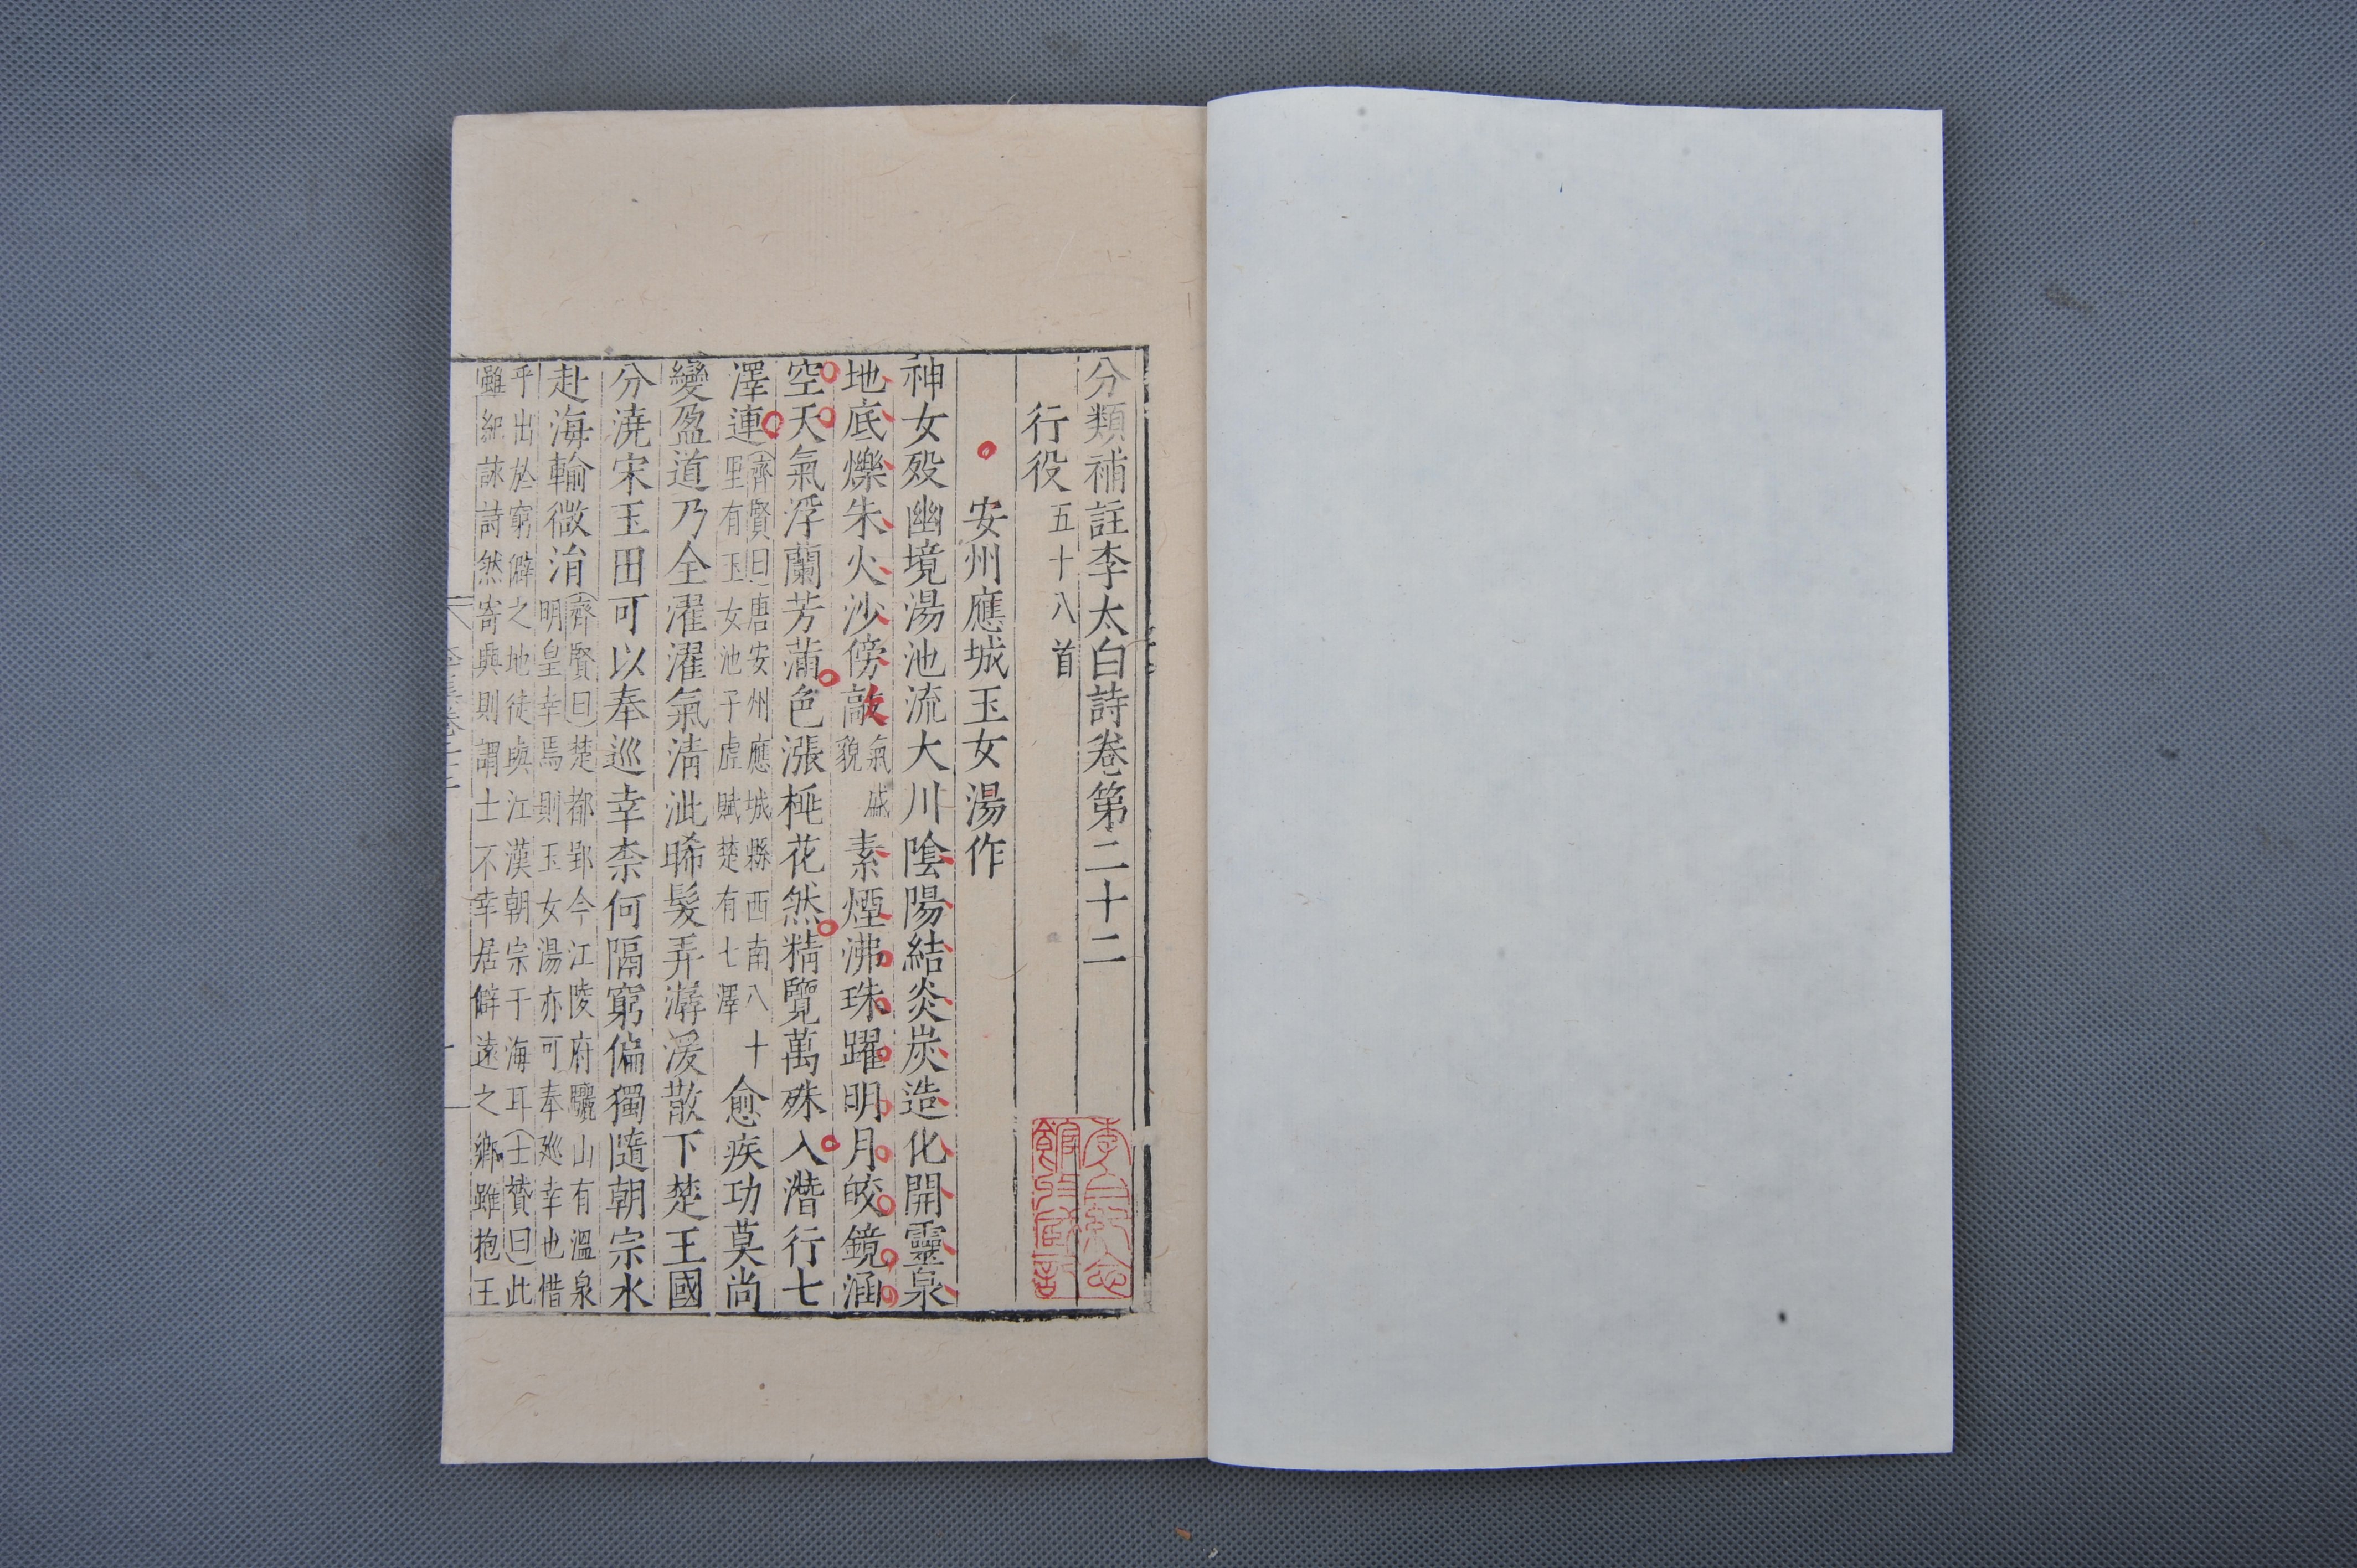 分類補註李太白詩卷第二十二
行役五十八首
安州應城玉女湯作
神女歿幽境湯池流大川陰陽結炎炭造化開靈泉
地底爍朱火沙傍歊氣貌素煙沸珠躍明月皎鏡涵
空天氣浮蘭芳滿色漲桃花然精覽萬殊入潛行七
澤連齊賢曰唐安州應城縣西南八十里有玉女池子虛賦楚有七澤愈疾功莫尚
變盈道乃全濯濯氣清泚晞髮弄潺湲散下楚王國
分澆宋玉田可以奉巡幸柰何隔窮偏獨隨朝宗水
赴海輸微涓齊賢曰楚都郢今江陵府驪山有溫泉明皇幸焉則玉女湯亦可奉廵幸也惜
乎出於窮僻之地徒與江漢朝宗于海耳士贇曰此
雖紀詠詩然寄興則謂士不幸居僻遠之鄉雖抱王
李白紀念館收藏記